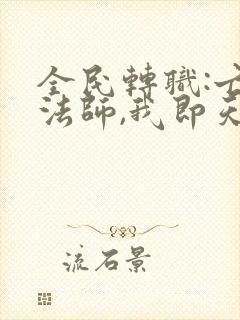 全民轉職:
法師,我即
流石景